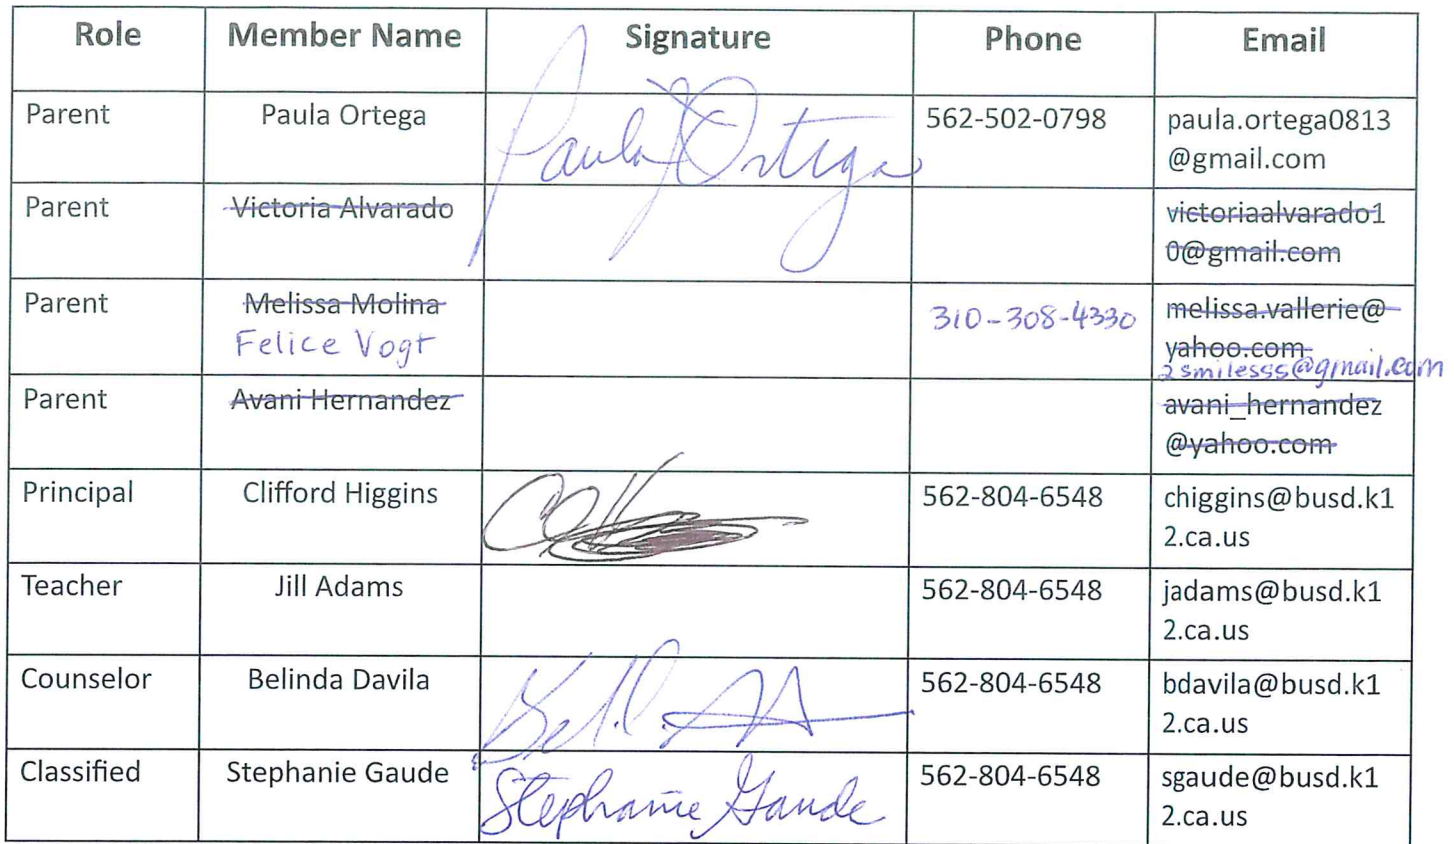 Role Member Name Signature Phone Email
Parent Paula Ortega Paula Ortega 562-502-0798 paula.ortega0813
@gmail.com
Parent Victoria Alvarado victoriaalvarado1
0@gmail.com
Parent Melissa Molina 310-308-4330 melissa.vallerie@
Felice Vogt yahoo.com
2smilesss@gmail.com
Parent Avani Hernandez avani_hernandez
@yahoo.com
Principal Clifford Higgins 562-804-6548 chiggins@busd.k1
2.ca.us
Teacher Jill Adams 562-804-6548 jadams@busd.k1
2.ca.us
Counselor Belinda Davila 562-804-6548 bdavila@busd.k1
2.ca.us
Classified Stephanie Gaude Stephanie Gaude 562-804-6548 sgaude@busd.k1
2.ca.us